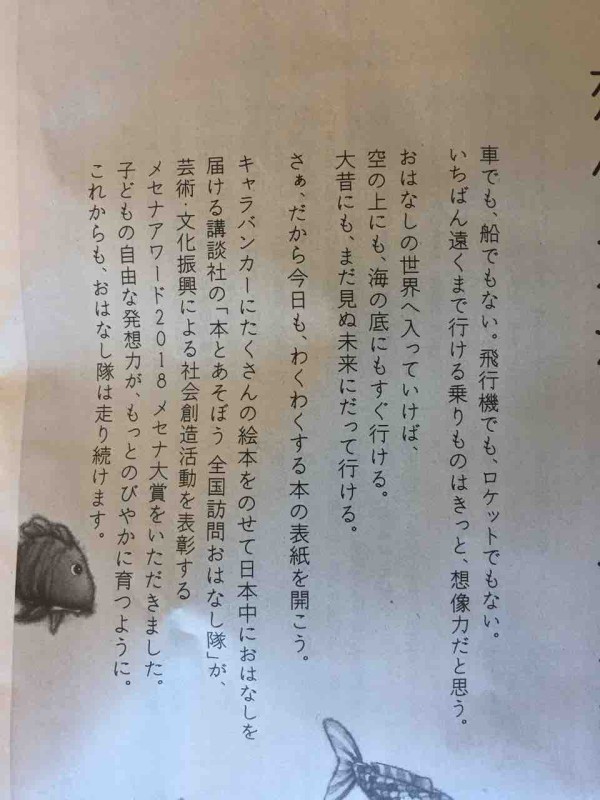 車でも、船でもない。飛行機でも、ロケットでもない。
いちばん遠くまで行ける乗りものはきっと、想像力だと思う。
おはなしの世界へ入っていけば、
空の上にも、海の底にもすぐ行ける。
大昔にも、まだ見ぬ未来にだって行ける。
さぁ、だから今日も、わくわくする本の表紙を開こう。
キャラバンカーにたくさんの絵本をのせて日本中におはなしを
届ける講談社の「本とあそぼう 全国訪問おはなし隊」が、
芸術・文化振興による社会創造活動を表彰する
メセナアワード2018 メセナ大賞をいただきました。
子どもの自由な発想力が、もっとのびやかに育つように。
これからも、おはなし隊は走り続けます。